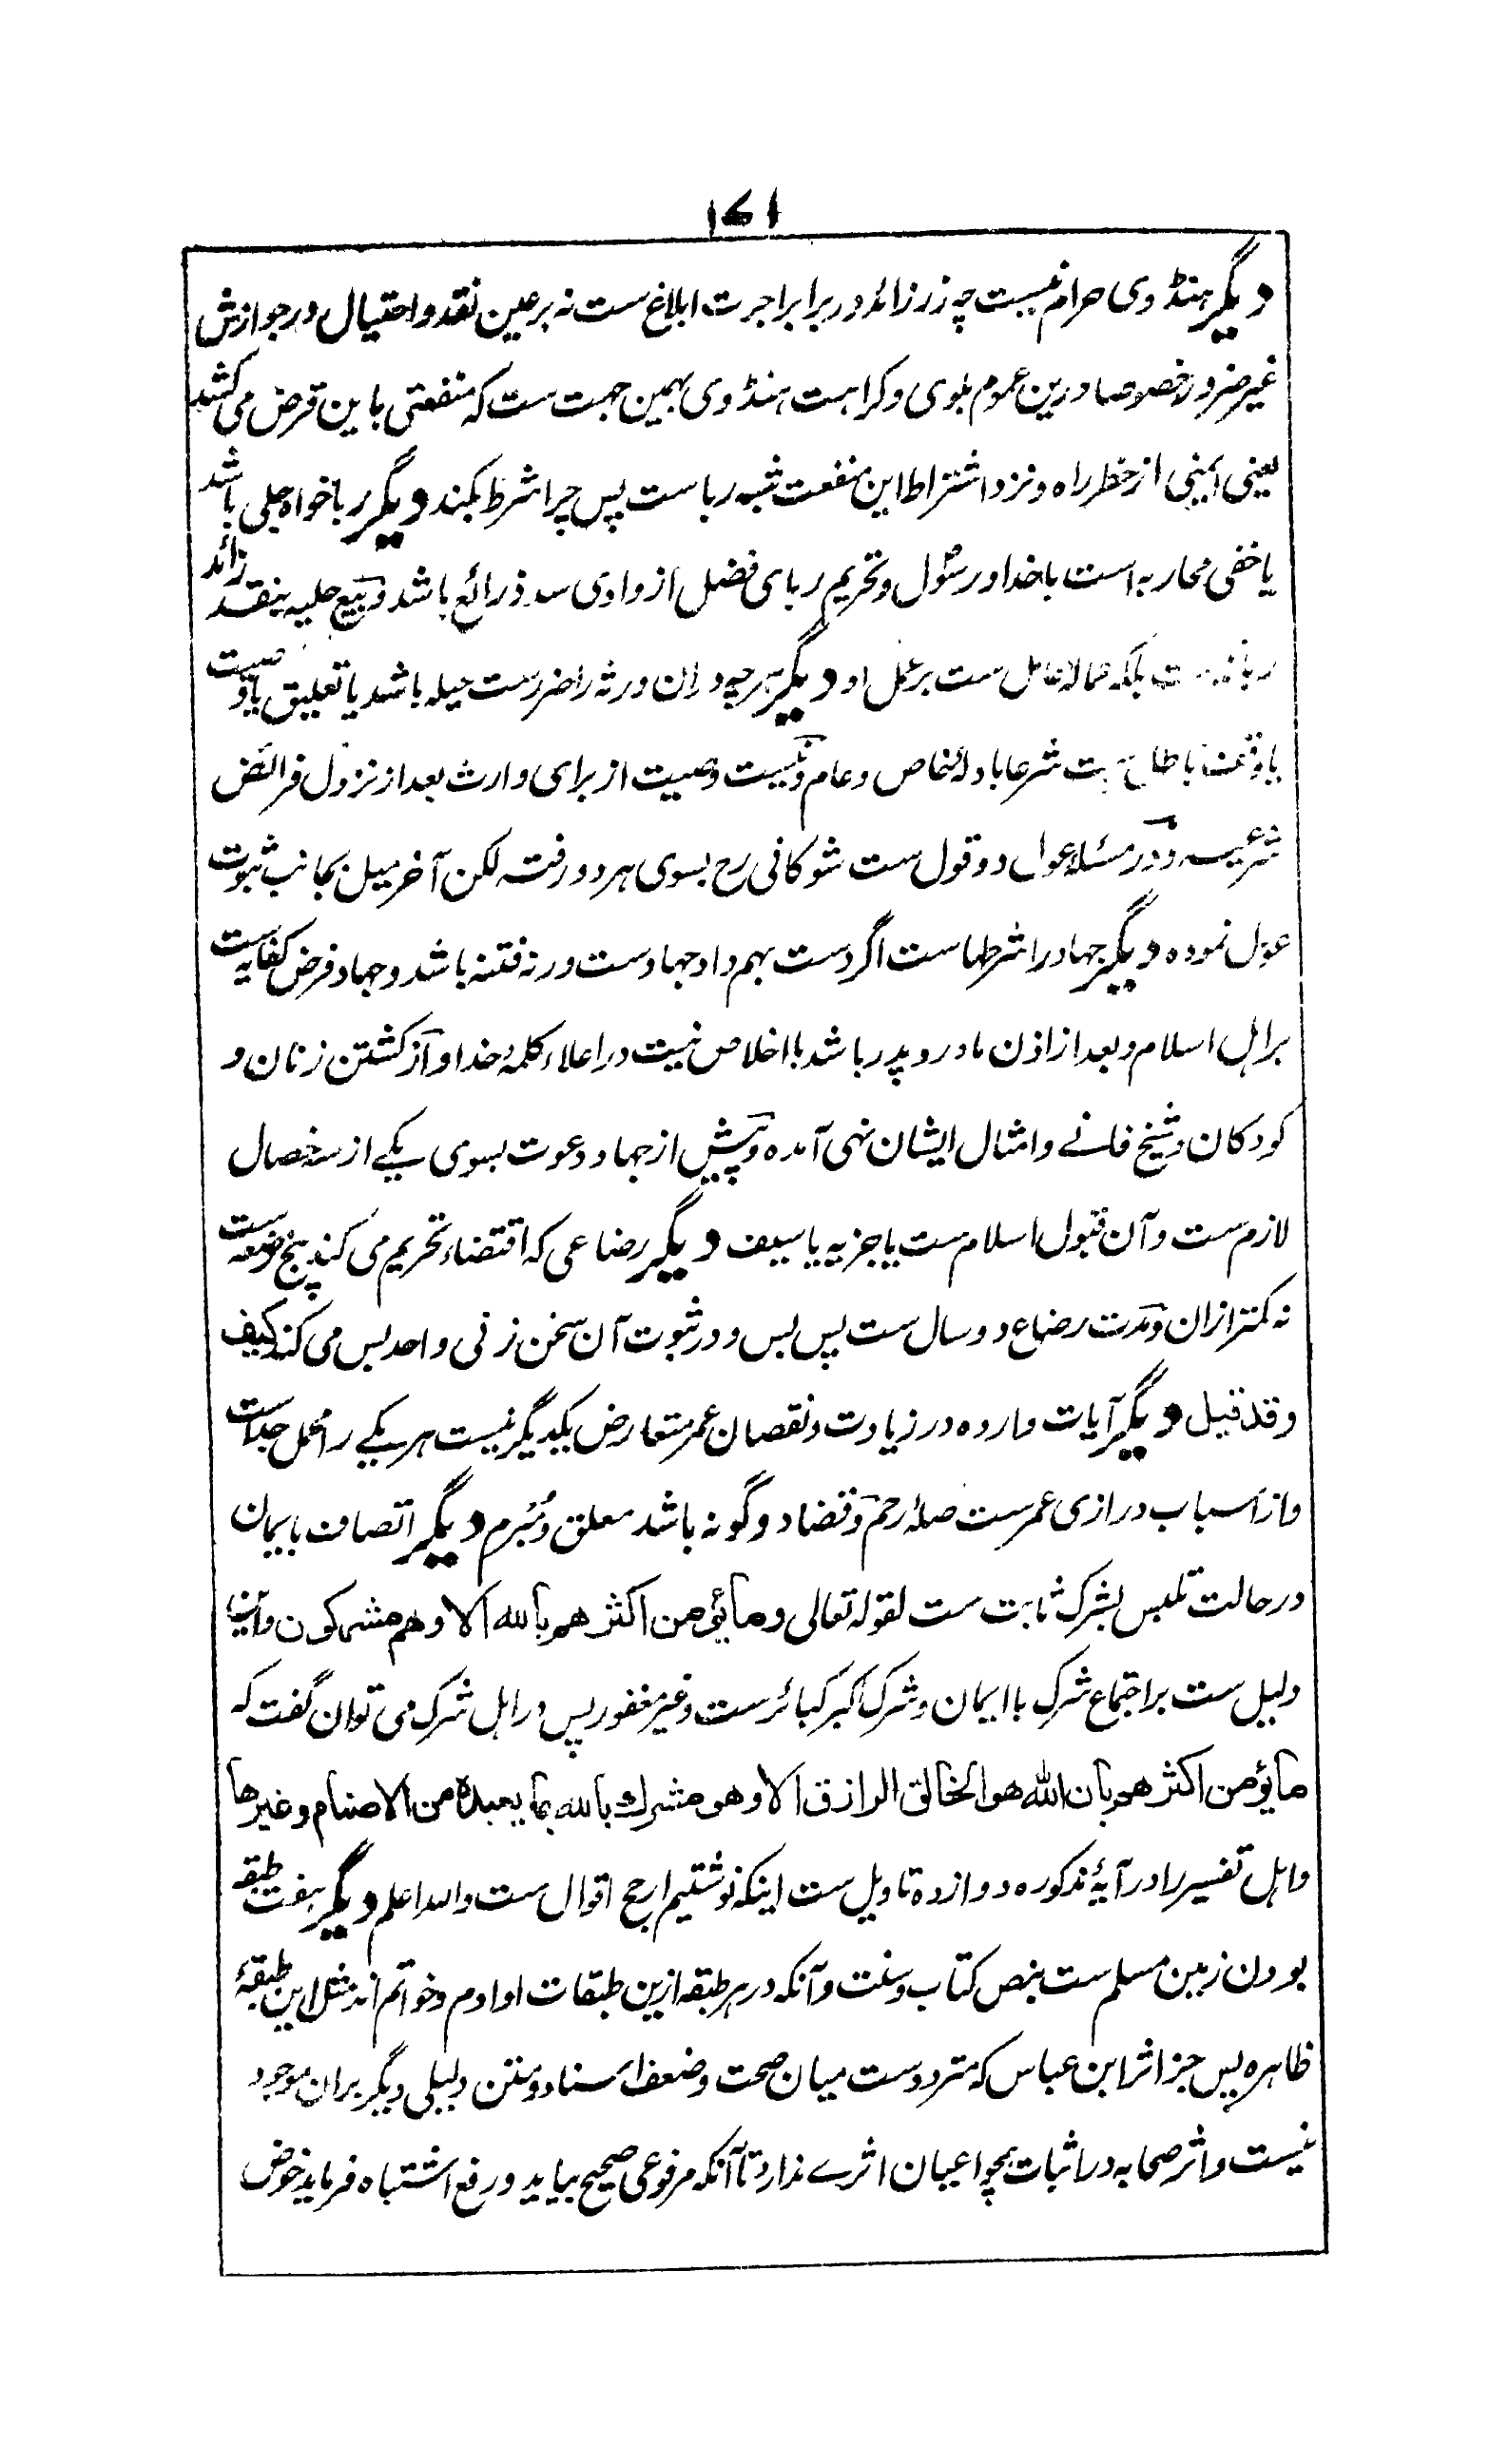 ۱۷۱
دیگر ہنڈوی حرام نیست چہ زر زائد در برابر اجرت ابلاغ ست نہ بر عین نقد و احتیال در جوازش
غیر ضرور خصوصا درین عموم بلوی و کراہت ہنڈوی بہمین جہت ست کہ منفعتی باین قرض می کشد
یعنی ایمنی از خطر راہ و نزد اشتراط این منفعت شبہ ربا ست پس چرا شرط بکند دیگر ربا خواہ جلی باشد
یا خفی محاربہ است با خدا و رسول و تحریم ربای فضل از وادی سد ذرائع باشد و بیع حلیہ بنقد زائد
ربا بلکہ ست بر عمل او دیگر ہرچہ دران ورثہ را ضررست حیلہ باشد یا تعلیق یا وصیت
یا وقف باطل ست شرعا بادلۂ خاص و عام و نیست وصیت از برای وارث بعد از نزول فرائض
شرعیہ و در مسئلۂ عول دو قول ست شوکانی رح بسوی ہر دو رفتہ لکن آخر میل بجانب ثبوت
عول نمودہ دیگر جہاد را شرطہاست اگر دست بہم داد جہادست ورنہ فتنہ باشد و جہاد فرض کفایہ ست
بر اہل اسلام و بعد از اذن مادر و پدر باشد با اخلاص نیت در اعلاء کلمۂ خدا و از کشتن زنان و
کودکان و شیخ فانے و امثال ایشان نہی آمدہ و پیش از جہاد دعوت بسوی یکے از سہ خصال
لازم ست و آن قبول اسلام ست یا جزیہ یا سیف دیگر رضاعی کہ اقتضاء تحریم می کند پنج رضعہ ست
نہ کمتر ازان و مدت رضاع دو سال ست پس بس و در ثبوت آن سخن زنی واحد بس می کند کیف
وقد قیل دیگر آیات واردہ در زیادت و نقصان عمر متعارض یکدیگر نیست ہر یکے را محمل جداست
و از اسباب درازی عمرست صلۂ رحم و قضا دو گونہ باشد معلق و مبرم دیگر اتصاف بایمان
در حالت تلبس بشرک ثابت ست لقولہ تعالی وما یؤمن اکثرھم باللہ الا وھم مشرکون و آیت
دلیل ست بر اجتماع شرک با ایمان و شرک اکبر کبائرست و غیر مغفور پس در اہل شرک می توان گفت کہ
ما یؤمن اکثرھم بان اللہ ھو الخالق الرازق الا وھو مشرک باللہ بما یعبدہ من الاصنام وغیرھا
و اہل تفسیر را در آیۂ مذکورہ دوازدہ تاویل ست اینکہ نوشتیم ارجح اقوال ست واللہ اعلم دیگر ہفت طبقہ
بودن زمین مسلم ست بنص کتاب و سنت و آنکہ در ہر طبقہ ازین طبقات اوادم و خواتم اند مثل این طبقۂ
ظاہرہ پس جز اثر ابن عباس کہ متردد ست میان صحت و ضعف اسناد و متن دلیلی دیگر بران موجود
نیست و اثر صحابہ در اثبات ہمچو اعیان اثرے ندارد تا آنکہ مرفوعی صحیح بیاید و رفع اشتباہ فرماید خوض